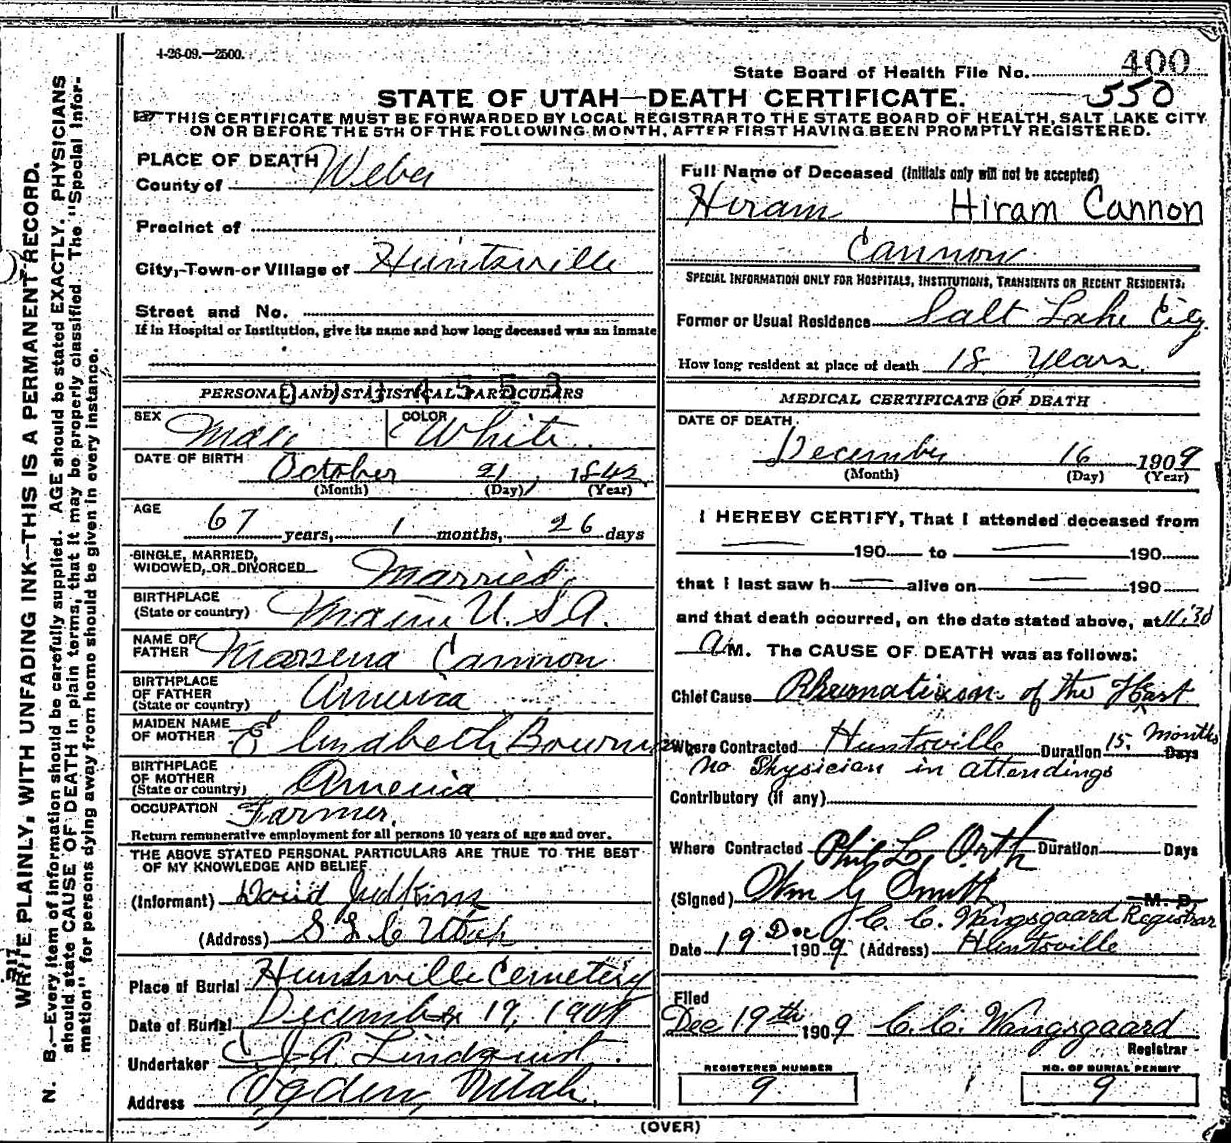 4-26-09.—2500.
400
State Board of Health File No.
550
STATE OF UTAH—DEATH CERTIFICATE.
THIS CERTIFICATE MUST BE FORWARDED BY LOCAL REGISTRAR TO THE STATE BOARD OF HEALTH, SALT LAKE CITY
ON OR BEFORE THE 5TH OF THE FOLLOWING MONTH, AFTER FIRST HAVING BEEN PROMPTLY REGISTERED.
WRITE PLAINLY, WITH UNFADING INK—THIS IS A PERMANENT RECORD.
N. B.—Every item of information should be carefully supplied. AGE should be stated EXACTLY. PHYSICIANS
should state CAUSE OF DEATH in plain terms, that it may be properly classified. The "Special Infor-
mation" for persons dying away from home should be given in every instance.
PLACE OF DEATH
County of Weber
Precinct of
City, Town or Village of Huntsville
Street and No.
If in Hospital or Institution, give its name and how long deceased was an inmate
PERSONAL AND STATISTICAL PARTICULARS
SEX Male COLOR White
DATE OF BIRTH October 21, 1842
(Month) (Day) (Year)
AGE
67 years, 1 months, 26 days
SINGLE, MARRIED,
WIDOWED, OR DIVORCED Married
BIRTHPLACE
(State or country) Maine U.S.A.
NAME OF
FATHER Marsena Cannon
BIRTHPLACE
OF FATHER
(State or country) America
MAIDEN NAME
OF MOTHER
BIRTHPLACE
OF MOTHER
(State or country) America
OCCUPATION
Farmer.
Return remunerative employment for all persons 10 years of age and over.
THE ABOVE STATED PERSONAL PARTICULARS ARE TRUE TO THE BEST
OF MY KNOWLEDGE AND BELIEF
(Informant) David Judkins
(Address) S L C Utah
Place of Burial Huntsville Cemetery
Date of Burial December 19, 1909
Undertaker J. A. Lindquist.
Address Ogden, Utah.
Full Name of Deceased (Initials only will not be accepted)
Hiram Hiram Cannon
Cannon
SPECIAL INFORMATION ONLY FOR HOSPITALS, INSTITUTIONS, TRANSIENTS OR RECENT RESIDENTS.
Former or Usual Residence Salt Lake City
How long resident at place of death 18 Years.
MEDICAL CERTIFICATE OF DEATH
DATE OF DEATH
December 16 1909
(Month) (Day) (Year)
I HEREBY CERTIFY, That I attended deceased from
190 to 190
that I last saw h alive on 190
and that death occurred, on the date stated above, at 11:30
A M. The CAUSE OF DEATH was as follows:
Chief Cause Rheumatism of the Heart
Where Contracted Huntsville Duration 15 Months Days
no Physician in attendings
Contributory (if any)
Where Contracted Phil L Orth Duration Days
(Signed) Wm G Smith M. D.
C. C. Wangsgaard Registrar
Date 19 Dec 1909 (Address) Huntsville
Filed
Dec 19th 1909 C. C. Wangsgaard
Registrar
REGISTERED NUMBER
9
NO. OF BURIAL PERMIT
9
(OVER)